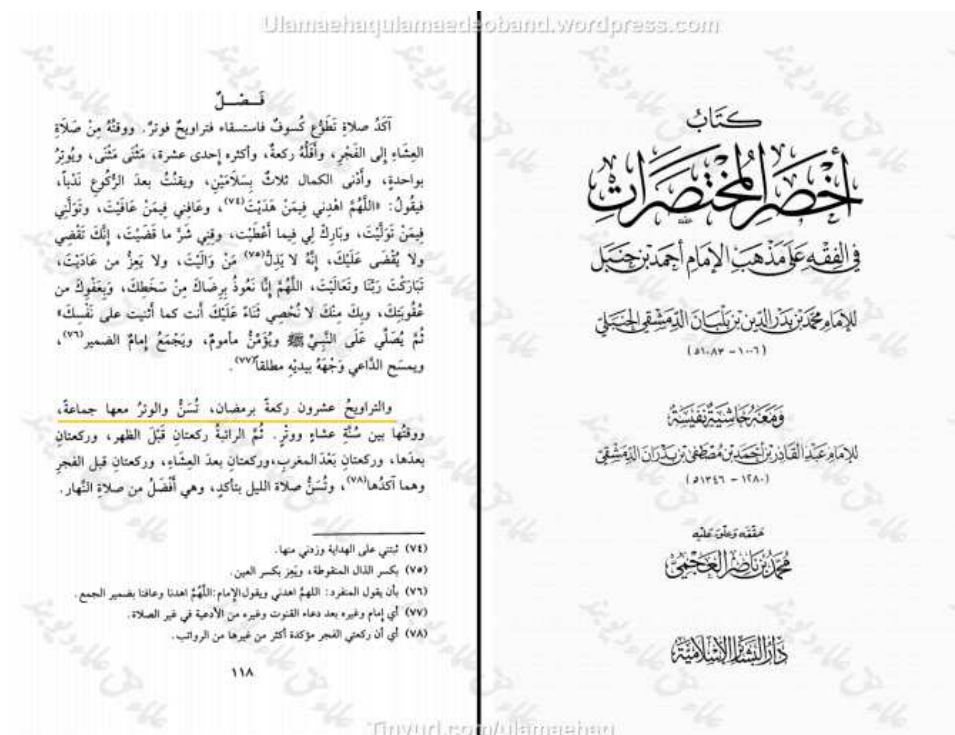 Ulamaehaqulamaedeoband.wordpress.com
كتاب
أخصر المختصرات
في الفقه على مذهب الإمام أحمد بن حنبل
للإمام محمد بن بدر الدين بن بلبان الدمشقي الحنبلي
(١٠٠٦ - ١٠٨٣ ه)
ومعه حاشية نفيسة
للإمام عبد القادر بن أحمد بن مصطفى بن بدران الدمشقي
(١٢٨٠ - ١٣٤٦ ه)
حققه وعلق عليه
محمد بن ناصر العجمي
دار البشائر الإسلامية
فَصْلٌ
آكَدُ صلاةِ تَطَوُّعٍ كُسوفٌ فاستسقاء فتراويحُ فوترٌ. ووقتُهُ مِنْ صَلَاةِ
العِشَاءِ إلى الفَجْرِ، وأَقَلُّهُ ركعةٌ، وأكثره إحدى عشرة، مَثْنَى مَثْنَى، ويُوتِرُ
بواحدةٍ، وأَدْنى الكمال ثلاثٌ بِسَلَامَيْنِ، ويقنُتُ بعدَ الرُّكُوعِ نَدْباً،
فيقُولُ: «اللَّهُمَّ اهْدِني فِيمَنْ هَدَيْتَ(٧٤)، وعَافِني فيمَنْ عَافَيْتَ، وتَوَلَّنِي
فِيمَنْ تَوَلَّيْتَ، وبَارِكْ لِي فيما أَعْطَيْت، وقِنِي شَرَّ ما قَضَيْتَ، إنَّكَ تَقْضِي
ولا يُقْضَى عَلَيْكَ، إِنَّهُ لا يَذِلُّ(٧٥) مَنْ وَالَيْتَ، ولا يَعِزُّ من عَادَيْتَ،
تَبَارَكْتَ رَبَّنَا وتَعَالَيْتَ، اللَّهُمَّ إنَّا نَعُوذُ بِرِضَاكَ مِنْ سَخَطِكَ، وَبِعَفْوِكَ من
عُقُوبَتِكَ، وبِكَ مِنْكَ لا نُحْصِي ثَنَاءً عَلَيْكَ أنت كما أثنيت على نَفْسِكَ»
ثُمَّ يُصَلِّي عَلَى النَّبِيِّ ﷺ ويُؤَمِّنُ مأمومٌ، ويَجْمَعُ إمامٌ الضمير(٧٦)،
ويمسَح الدَّاعي وَجْهَهُ بيديْهِ مطلقاً(٧٧).
والتراويحُ عشرون ركعةً برمضان، تُسَنُّ والوترُ معها جماعةً،
ووقتُها بين سُنَّةِ عشاءٍ ووتْرٍ. ثُمَّ الراتبةُ ركعتانِ قَبْلَ الظهر، وركعتانِ
بعدَها، وركعتانِ بَعْدَ المغربِ، وركعتانِ بعدَ العِشَاءِ، وركعتانِ قبل الفجرِ
وهما آكدُها(٧٨)، وتُسَنُّ صلاة الليل بتأكدٍ، وهي أَفْضَلُ من صلاةِ النَّهار.
(٧٤) ثبتني على الهداية وزدني منها.
(٧٥) بكسر الذال المنقوطة، ويَعِز بكسر العين.
(٧٦) بأن يقول المنفرد: اللهمَّ اهدني ويقول الإمام: اللَّهُمَّ اهدنا وعافنا بضمير الجمع.
(٧٧) أي إمام وغيره بعد دعاء القنوت وغيره من الأدعية في غير الصلاة.
(٧٨) أي أن ركعتي الفجر مؤكدة أكثر من غيرها من الرواتب.
١١٨
Tinyurl.com/ulamaehaq